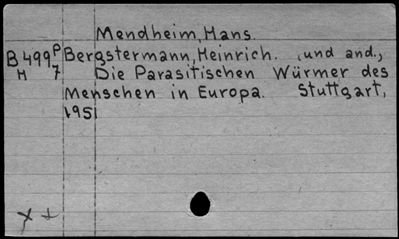 Mendheim, Hans.
B499P Bergstermann, Heinrich. , und and.,
H 7 Die Parasitischen Würmer des
Menschen in Europa. Stuttgart,
1951